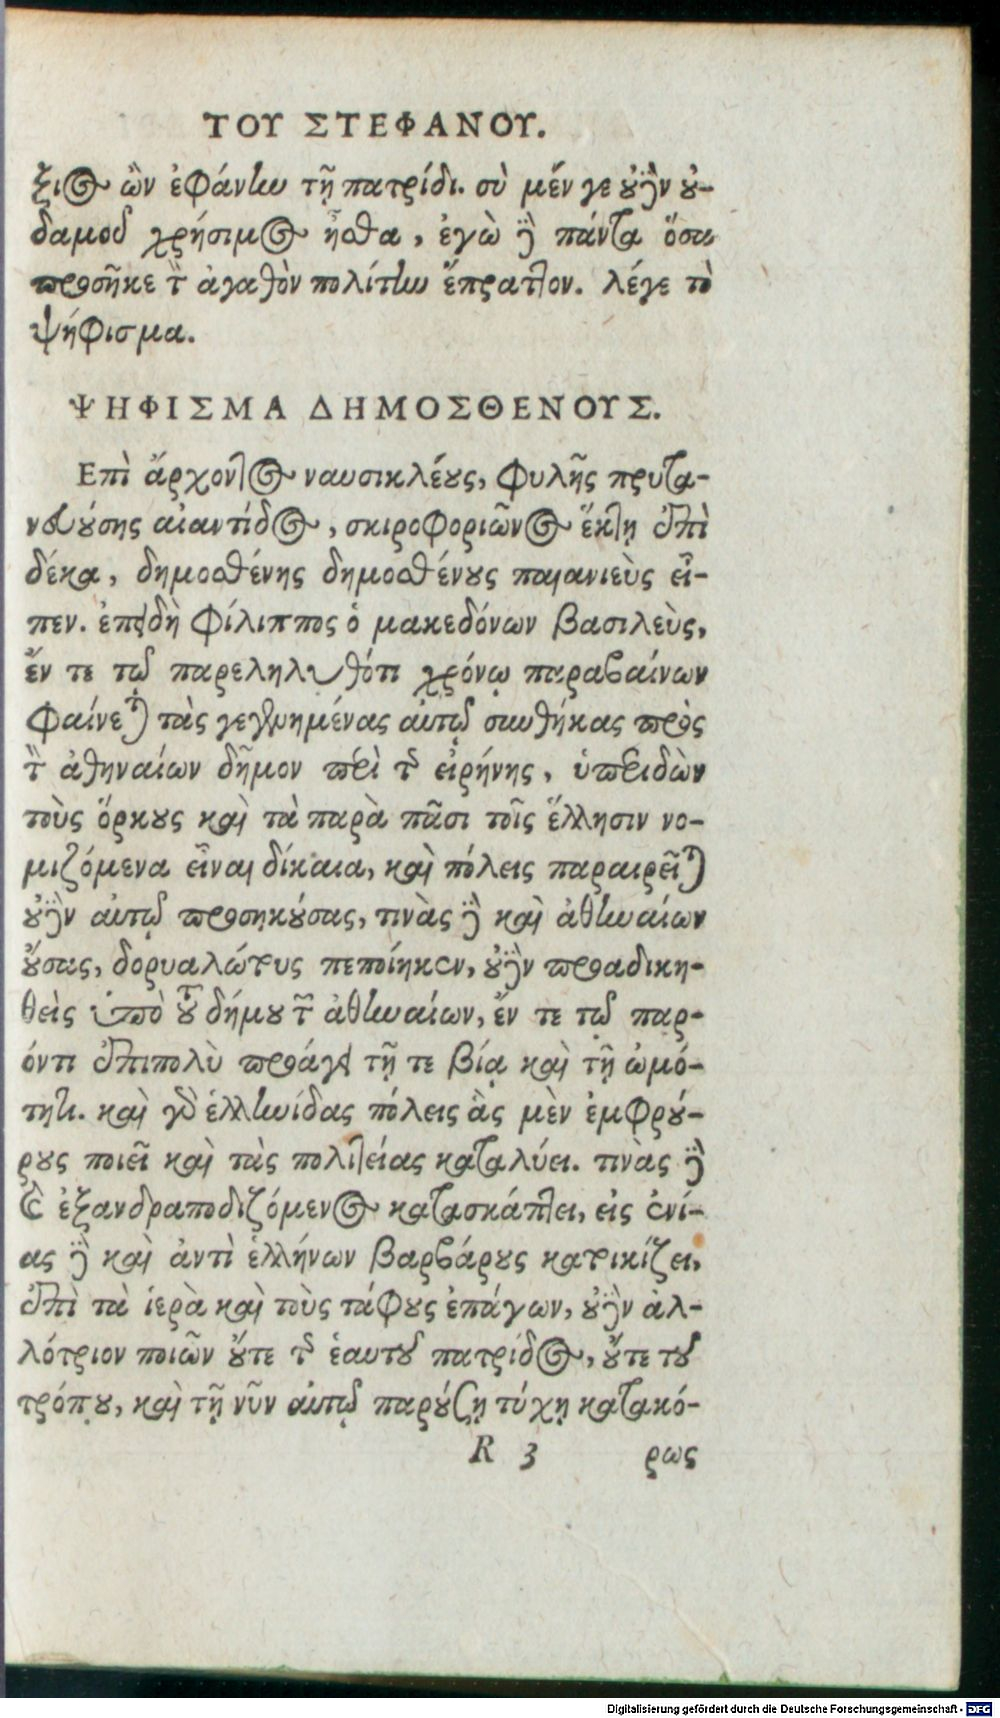 ΤΟΥ ΣΤΕΦΑΝΟΥ.
ξιος ὢν ἐφάνην τῇ πατρίδι. σὺ μέν γε οὐδὲν οὐ-
δαμοῦ χρήσιμος ἦσθα, ἐγὼ δὲ πάντα ὅσα
προσῆκε τὸν ἀγαθὸν πολίτην ἔπραττον. λέγε τὸ
ψήφισμα.
ΨΗΦΙΣΜΑ ΔΗΜΟΣΘΕΝΟΥΣ.
Επὶ ἄρχοντος ναυσικλέους, φυλῆς πρυτα-
νευούσης αἰαντίδος, σκιροφοριῶνος ἕκτῃ ἐπὶ
δέκα, δημοσθένης δημοσθένους παιανιεὺς εἶ-
πεν. ἐπειδὴ φίλιππος ὁ μακεδόνων βασιλεὺς,
ἔν τε τῷ παρεληλυθότι χρόνῳ παραβαίνων
φαίνεται τὰς γεγενημένας αὐτῷ συνθήκας πρὸς
τὸν ἀθηναίων δῆμον περὶ τῆς εἰρήνης, ὑπεριδὼν
τοὺς ὅρκους καὶ τὰ παρὰ πᾶσι τοῖς ἕλλησιν νο-
μιζόμενα εἶναι δίκαια, καὶ πόλεις παραιρεῖται
οὐδὲν αὐτῷ προσηκούσας, τινὰς δὲ καὶ ἀθηναίων
οὔσας, δορυαλώτους πεποίηκεν, οὐδὲν προαδικη-
θεὶς ὑπὸ τοῦ δήμου τῶν ἀθηναίων, ἔν τε τῷ παρ-
όντι ἐπιπολὺ προάγει τῇ τε βίᾳ καὶ τῇ ὠμό-
τητι. καὶ γὰρ ἑλληνίδας πόλεις ἃς μὲν ἐμφρού-
ρους ποιεῖ καὶ τὰς πολιτείας καταλύει. τινὰς δὲ
καὶ ἐξανδραποδιζόμενος κατασκάπτει, εἰς ἐνί-
ας δὲ καὶ ἀντὶ ἑλλήνων βαρβάρους κατοικίζει,
ἐπὶ τὰ ἱερὰ καὶ τοὺς τάφους ἐπάγων, οὐδὲν ἀλ-
λότριον ποιῶν οὔτε τῆς ἑαυτοῦ πατρίδος, οὔτε τοῦ
τρόπου, καὶ τῇ νῦν αὐτῷ παρούσῃ τύχῃ κατακό-
R 3 ρως
Digitalisierung gefördert durch die Deutsche Forschungsgemeinschaft - DFG